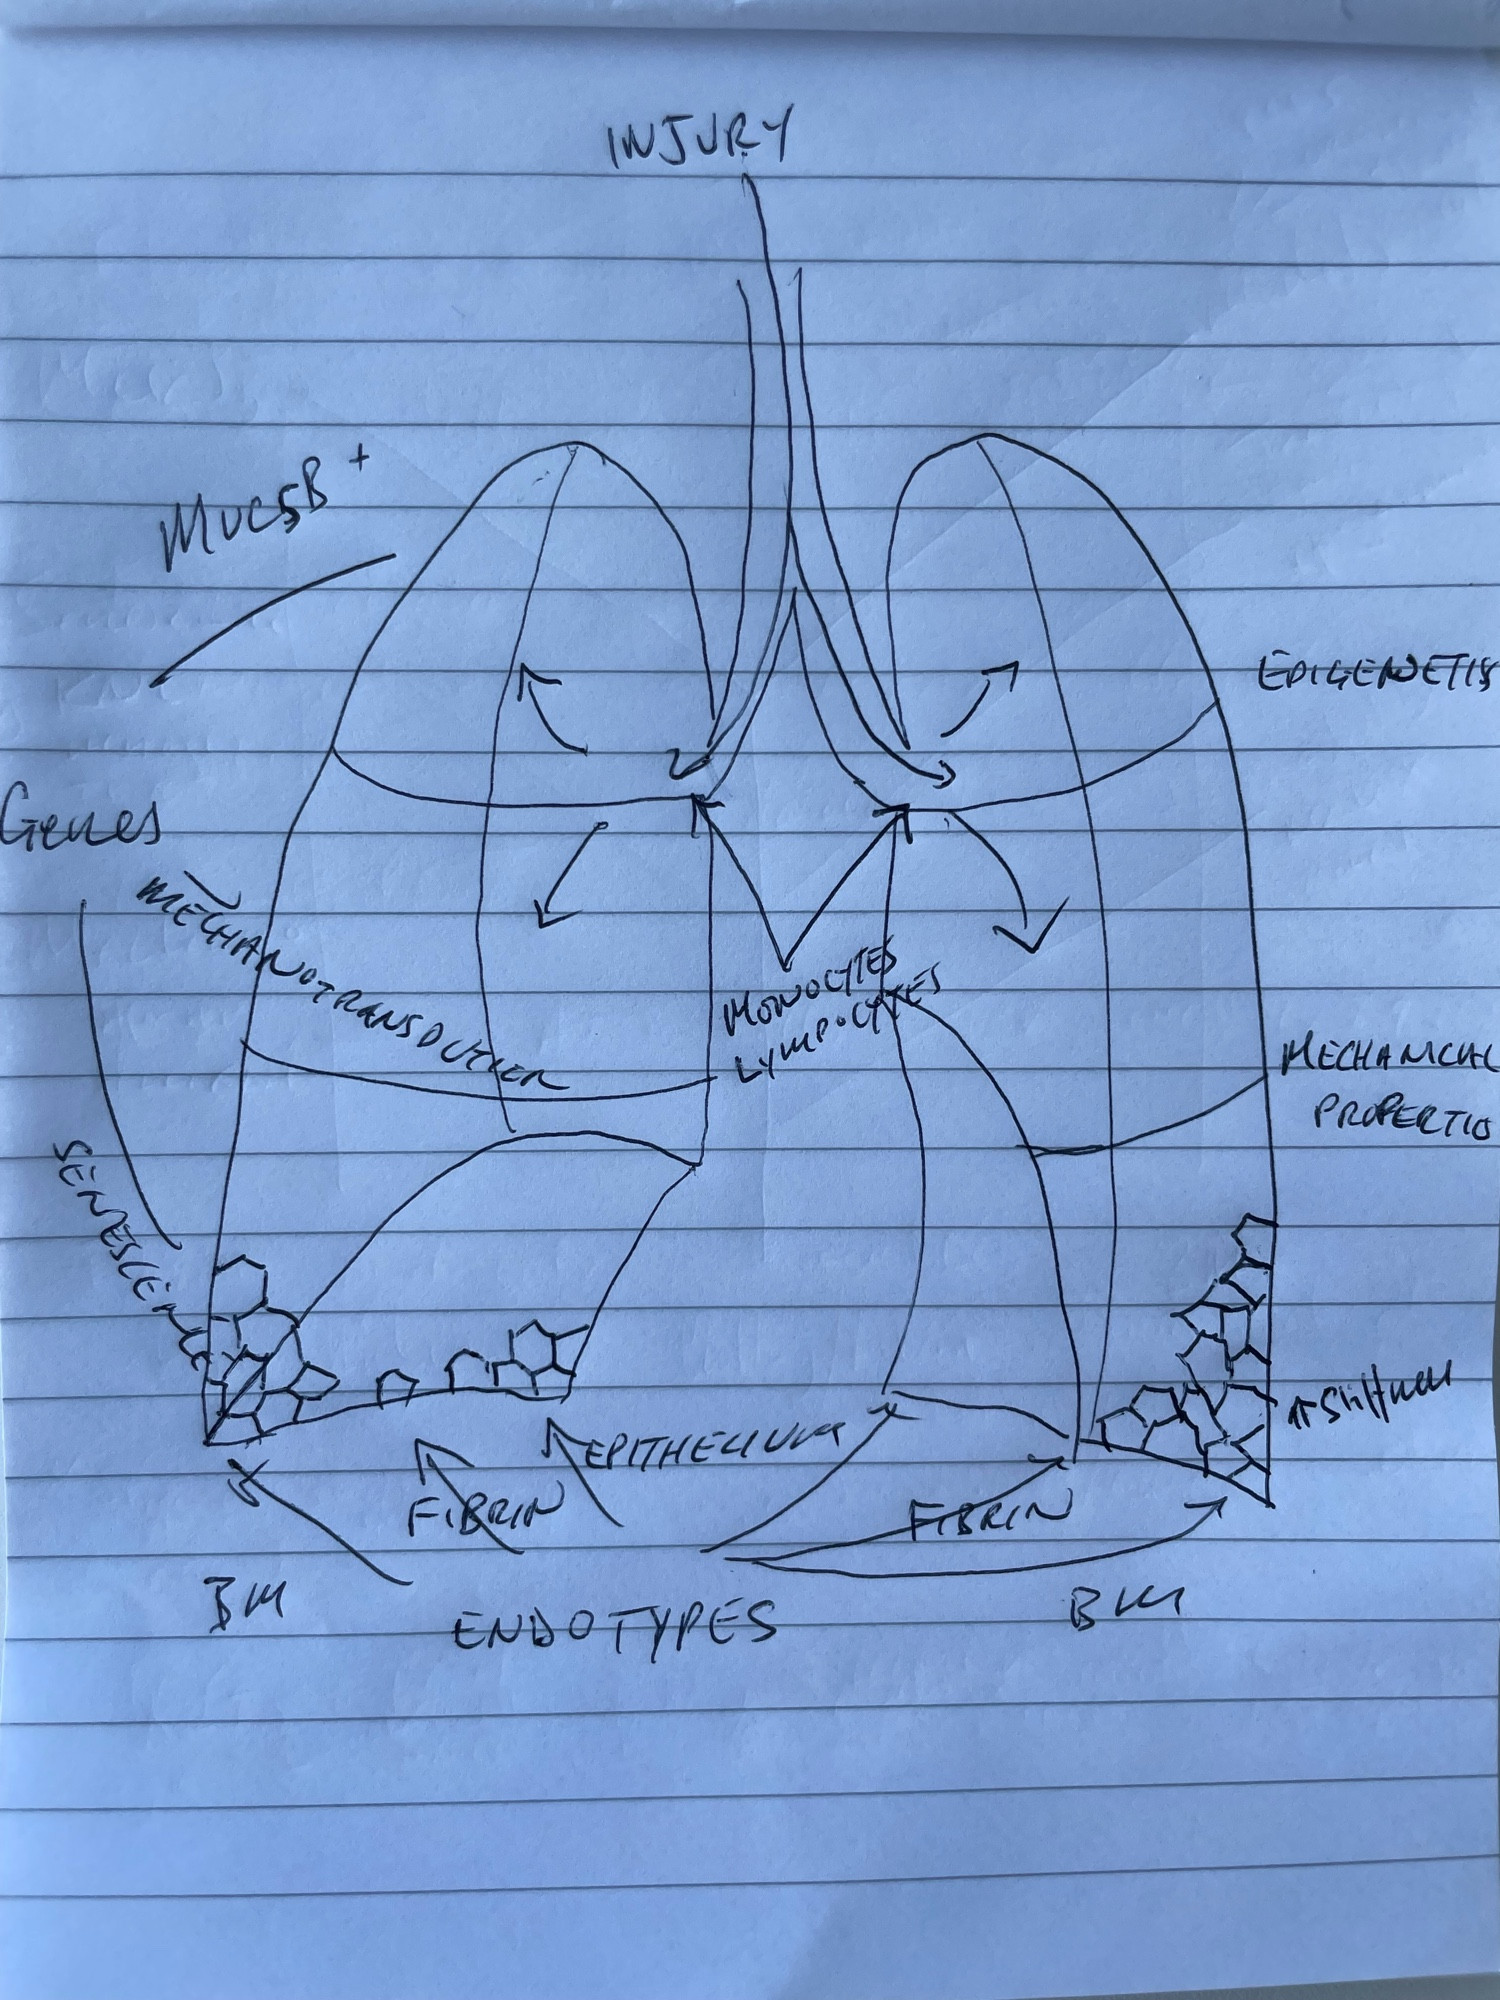 INJURY
MUC5B +
EPIGENETIS
Genes
MECHANOTRANSDUCTION
MONOCYTES
LYMPOCYTES
MECHANICAL
PROPERTIS
SENESCENCE
↑ Stiffness
EPITHELIUM
FIBRIN
FIBRIN
BM
BM
ENDOTYPES